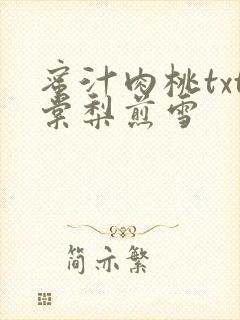 蜜汁肉桃txt
棠梨煎雪
简亦繁